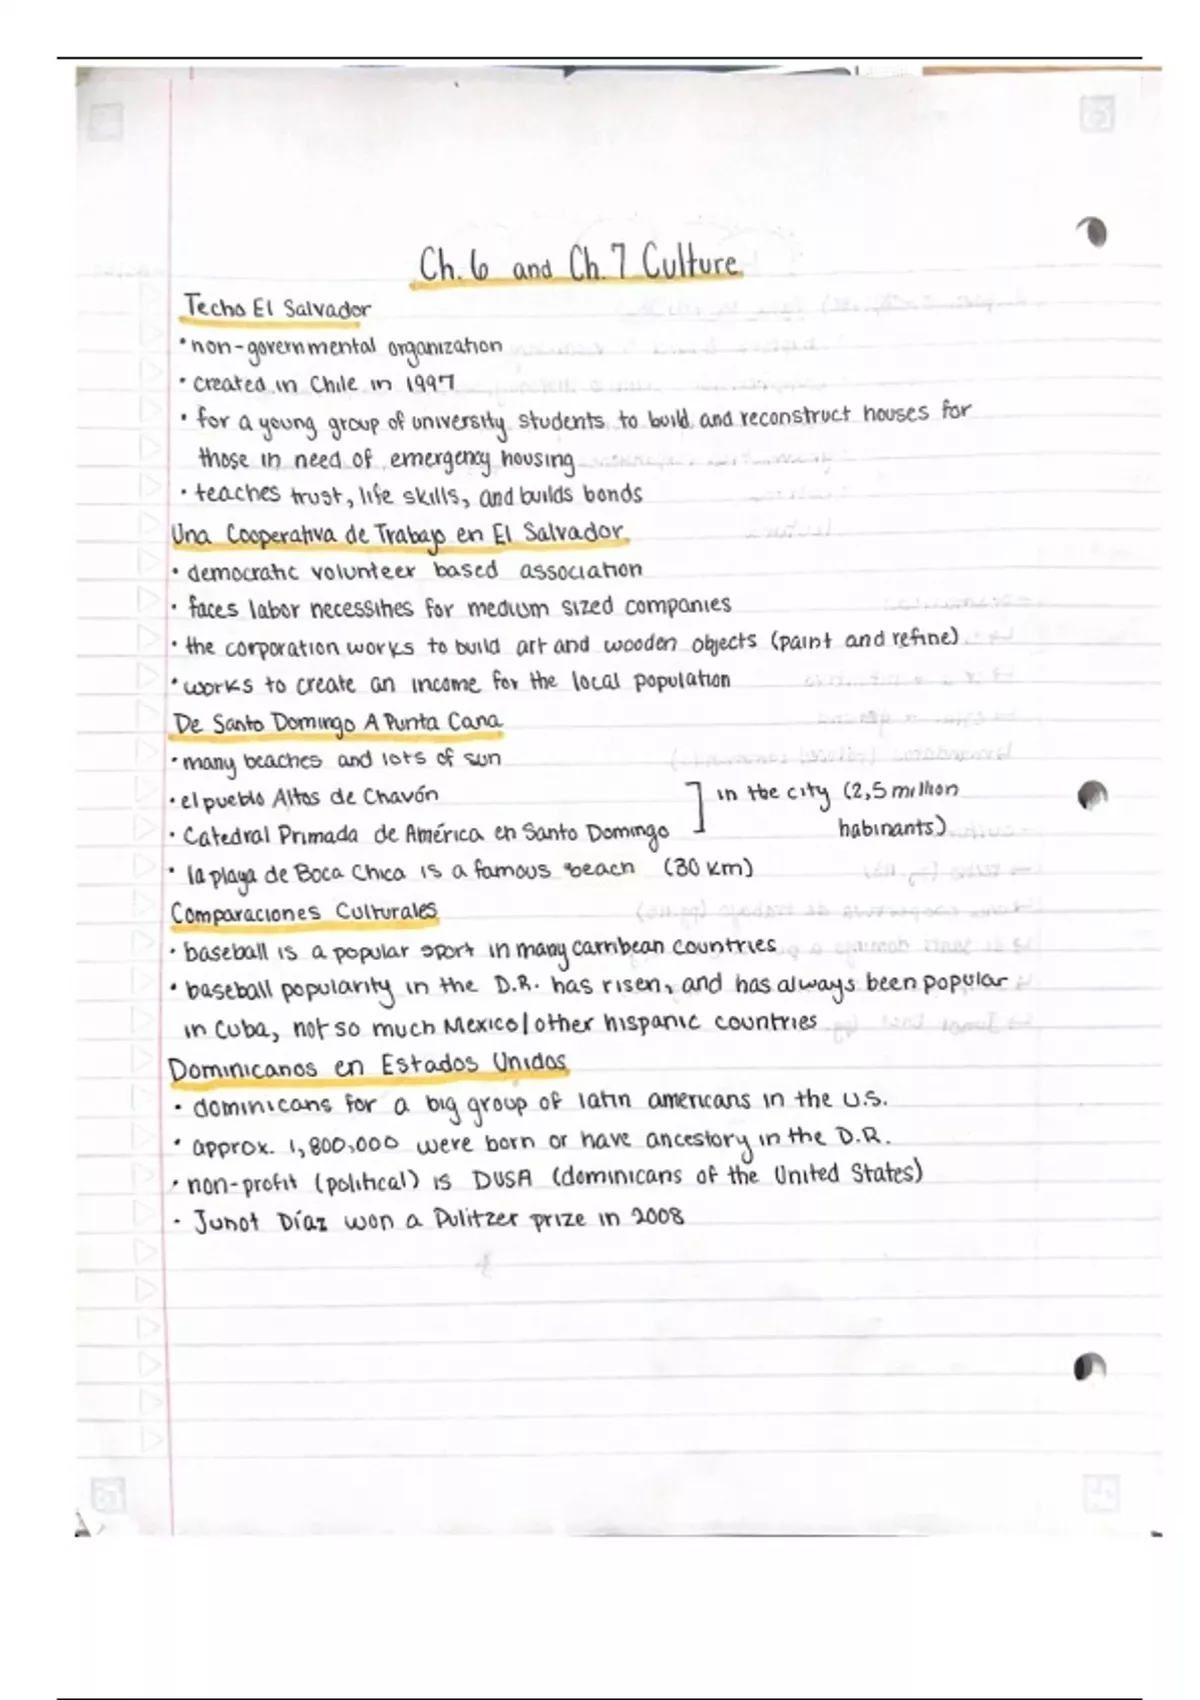 Ch. 6 and Ch. 7 Culture
Techo El Salvador
• non-governmental organization
• created in Chile in 1997
• for a young group of university students to build and reconstruct houses for
those in need of emergency housing
• teaches trust, life skills, and builds bonds
Una Cooperativa de Trabajo en El Salvador
• democratic volunteer based association
• faces labor necessities for medium sized companies
• the corporation works to build art and wooden objects (paint and refine)
• works to create an income for the local population
De Santo Domingo A Punta Cana
• many beaches and lots of sun
• el pueblo Altos de Chavón ] in the city (2,5 million
• Catedral Primada de América en Santo Domingo habinants)
• la playa de Boca Chica is a famous beach (30 km)
Comparaciones Culturales
• baseball is a popular sport in many carribean countries
• baseball popularity in the D.R. has risen, and has always been popular
in Cuba, not so much Mexico/other hispanic countries
Dominicanos en Estados Unidos
• dominicans for a big group of latin americans in the U.S.
• approx. 1,800,000 were born or have ancestory in the D.R.
• non-profit (political) is DUSA (dominicans of the United States)
• Junot Díaz won a Pulitzer prize in 2008